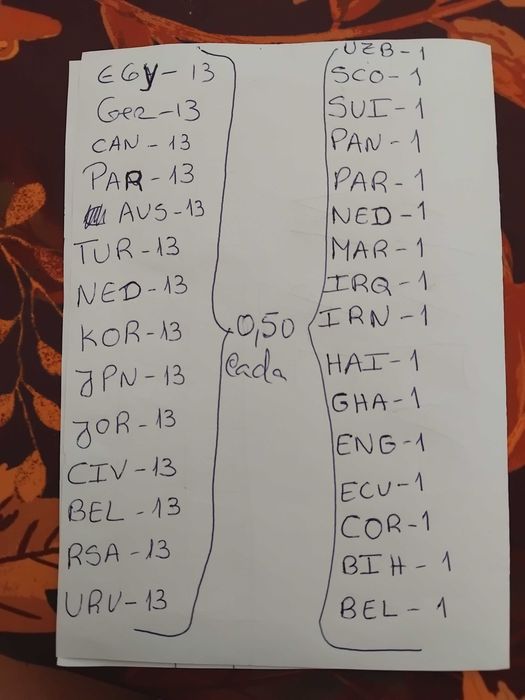 EGY - 13
Ger - 13
CAN - 13
PAR - 13
AUS - 13
TUR - 13
NED - 13
KOR - 13
JPN - 13
JOR - 13
CIV - 13
BEL - 13
RSA - 13
URU - 13
0,50
Cada
UZB - 1
SCO - 1
SUI - 1
PAN - 1
PAR - 1
NED - 1
MAR - 1
IRQ - 1
IRN - 1
HAI - 1
GHA - 1
ENG - 1
ECU - 1
COR - 1
BIH - 1
BEL - 1